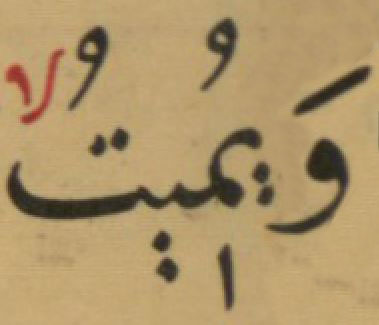 وَيُمٖيتُۙ